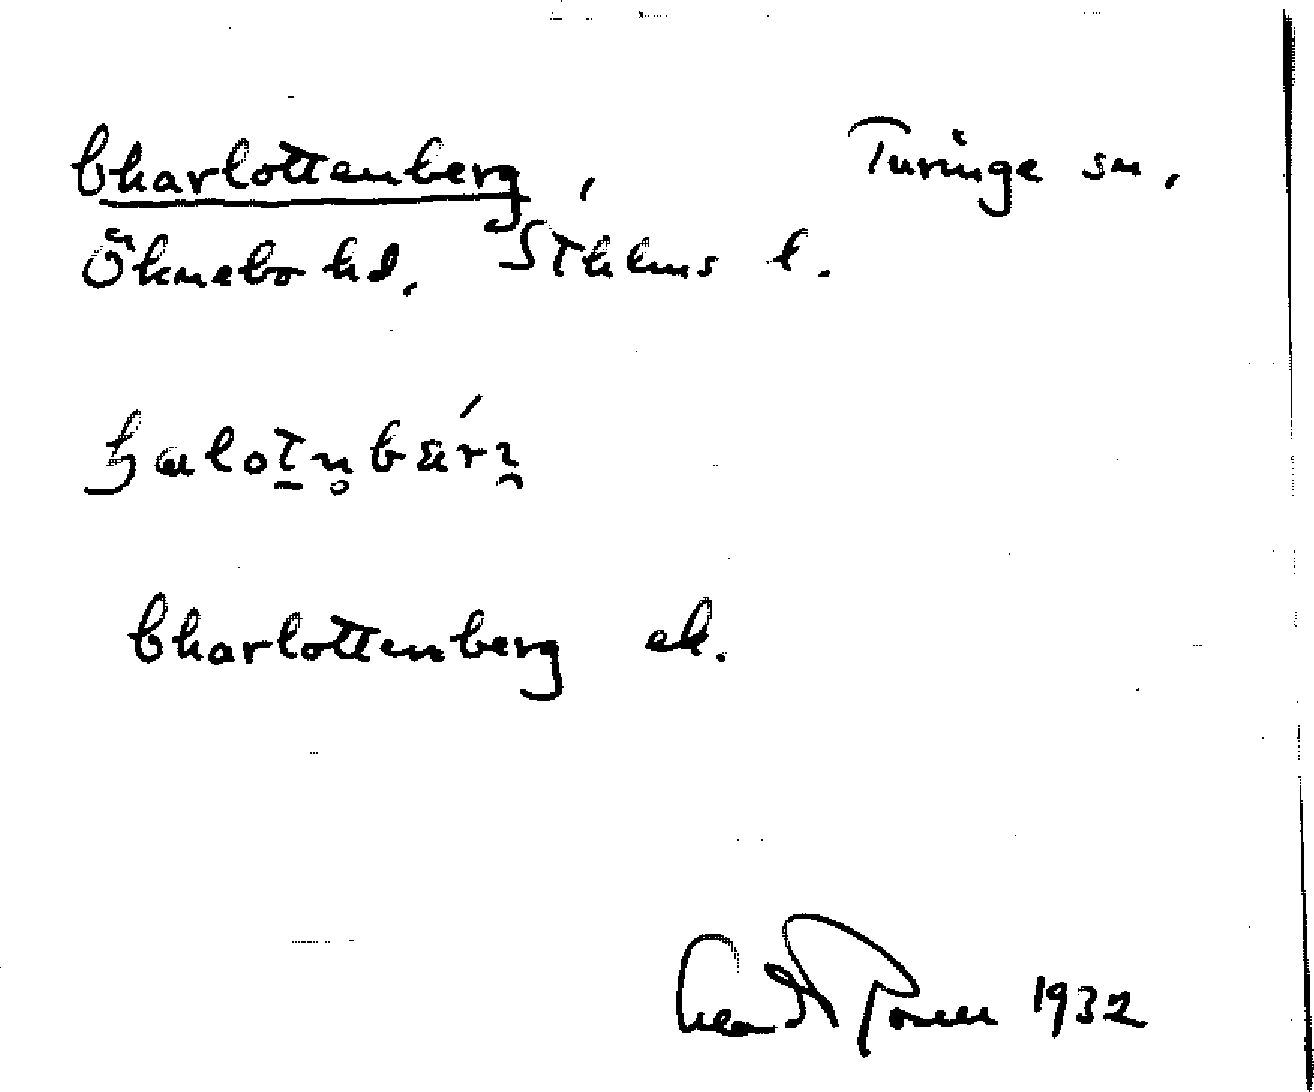 Charlottenberg, Turinge sn,
Öknebo hd, Sthlms l.
Charlottenberg ek.
1932